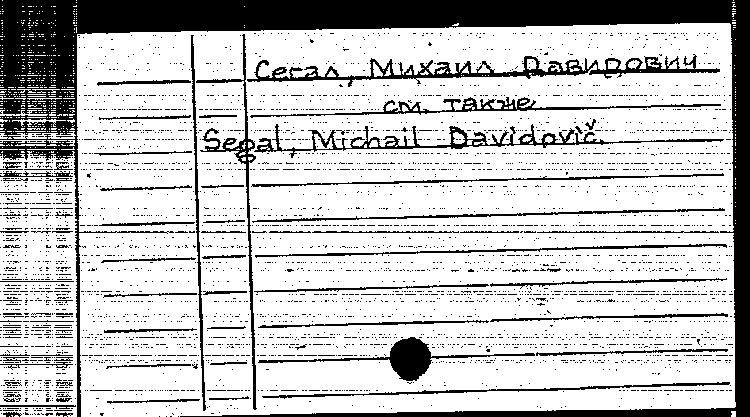 Сегал, Михаил Давидович
см. также
Segal, Michail Davidovič.